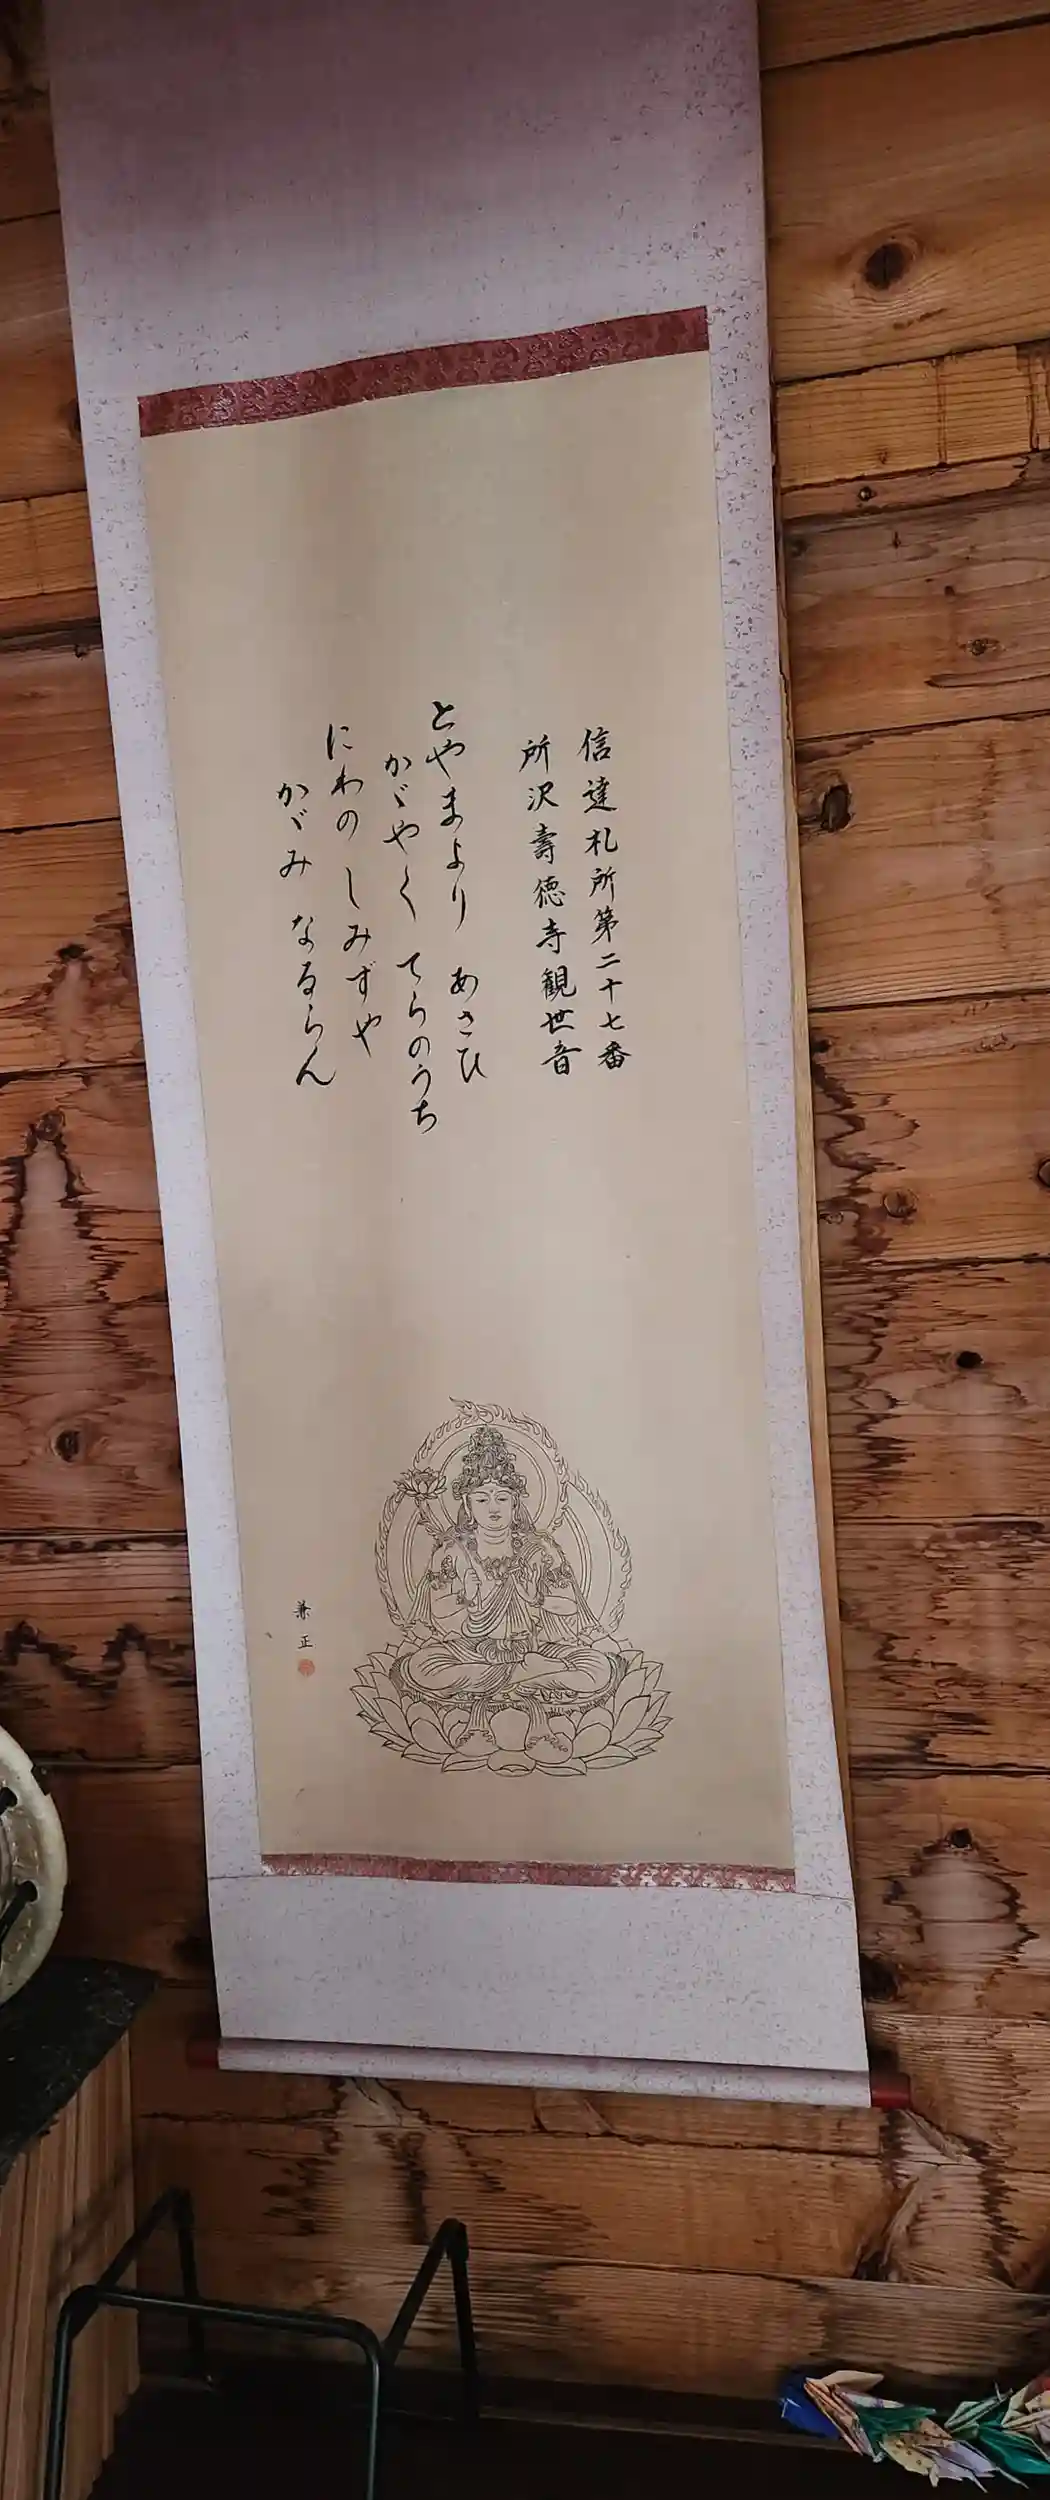 信達札所第二十七番
所沢壽徳寺観世音
とやまより あさひ
かゞやく てらのうち
にわの しみずや
かゞみ なるらん
兼正